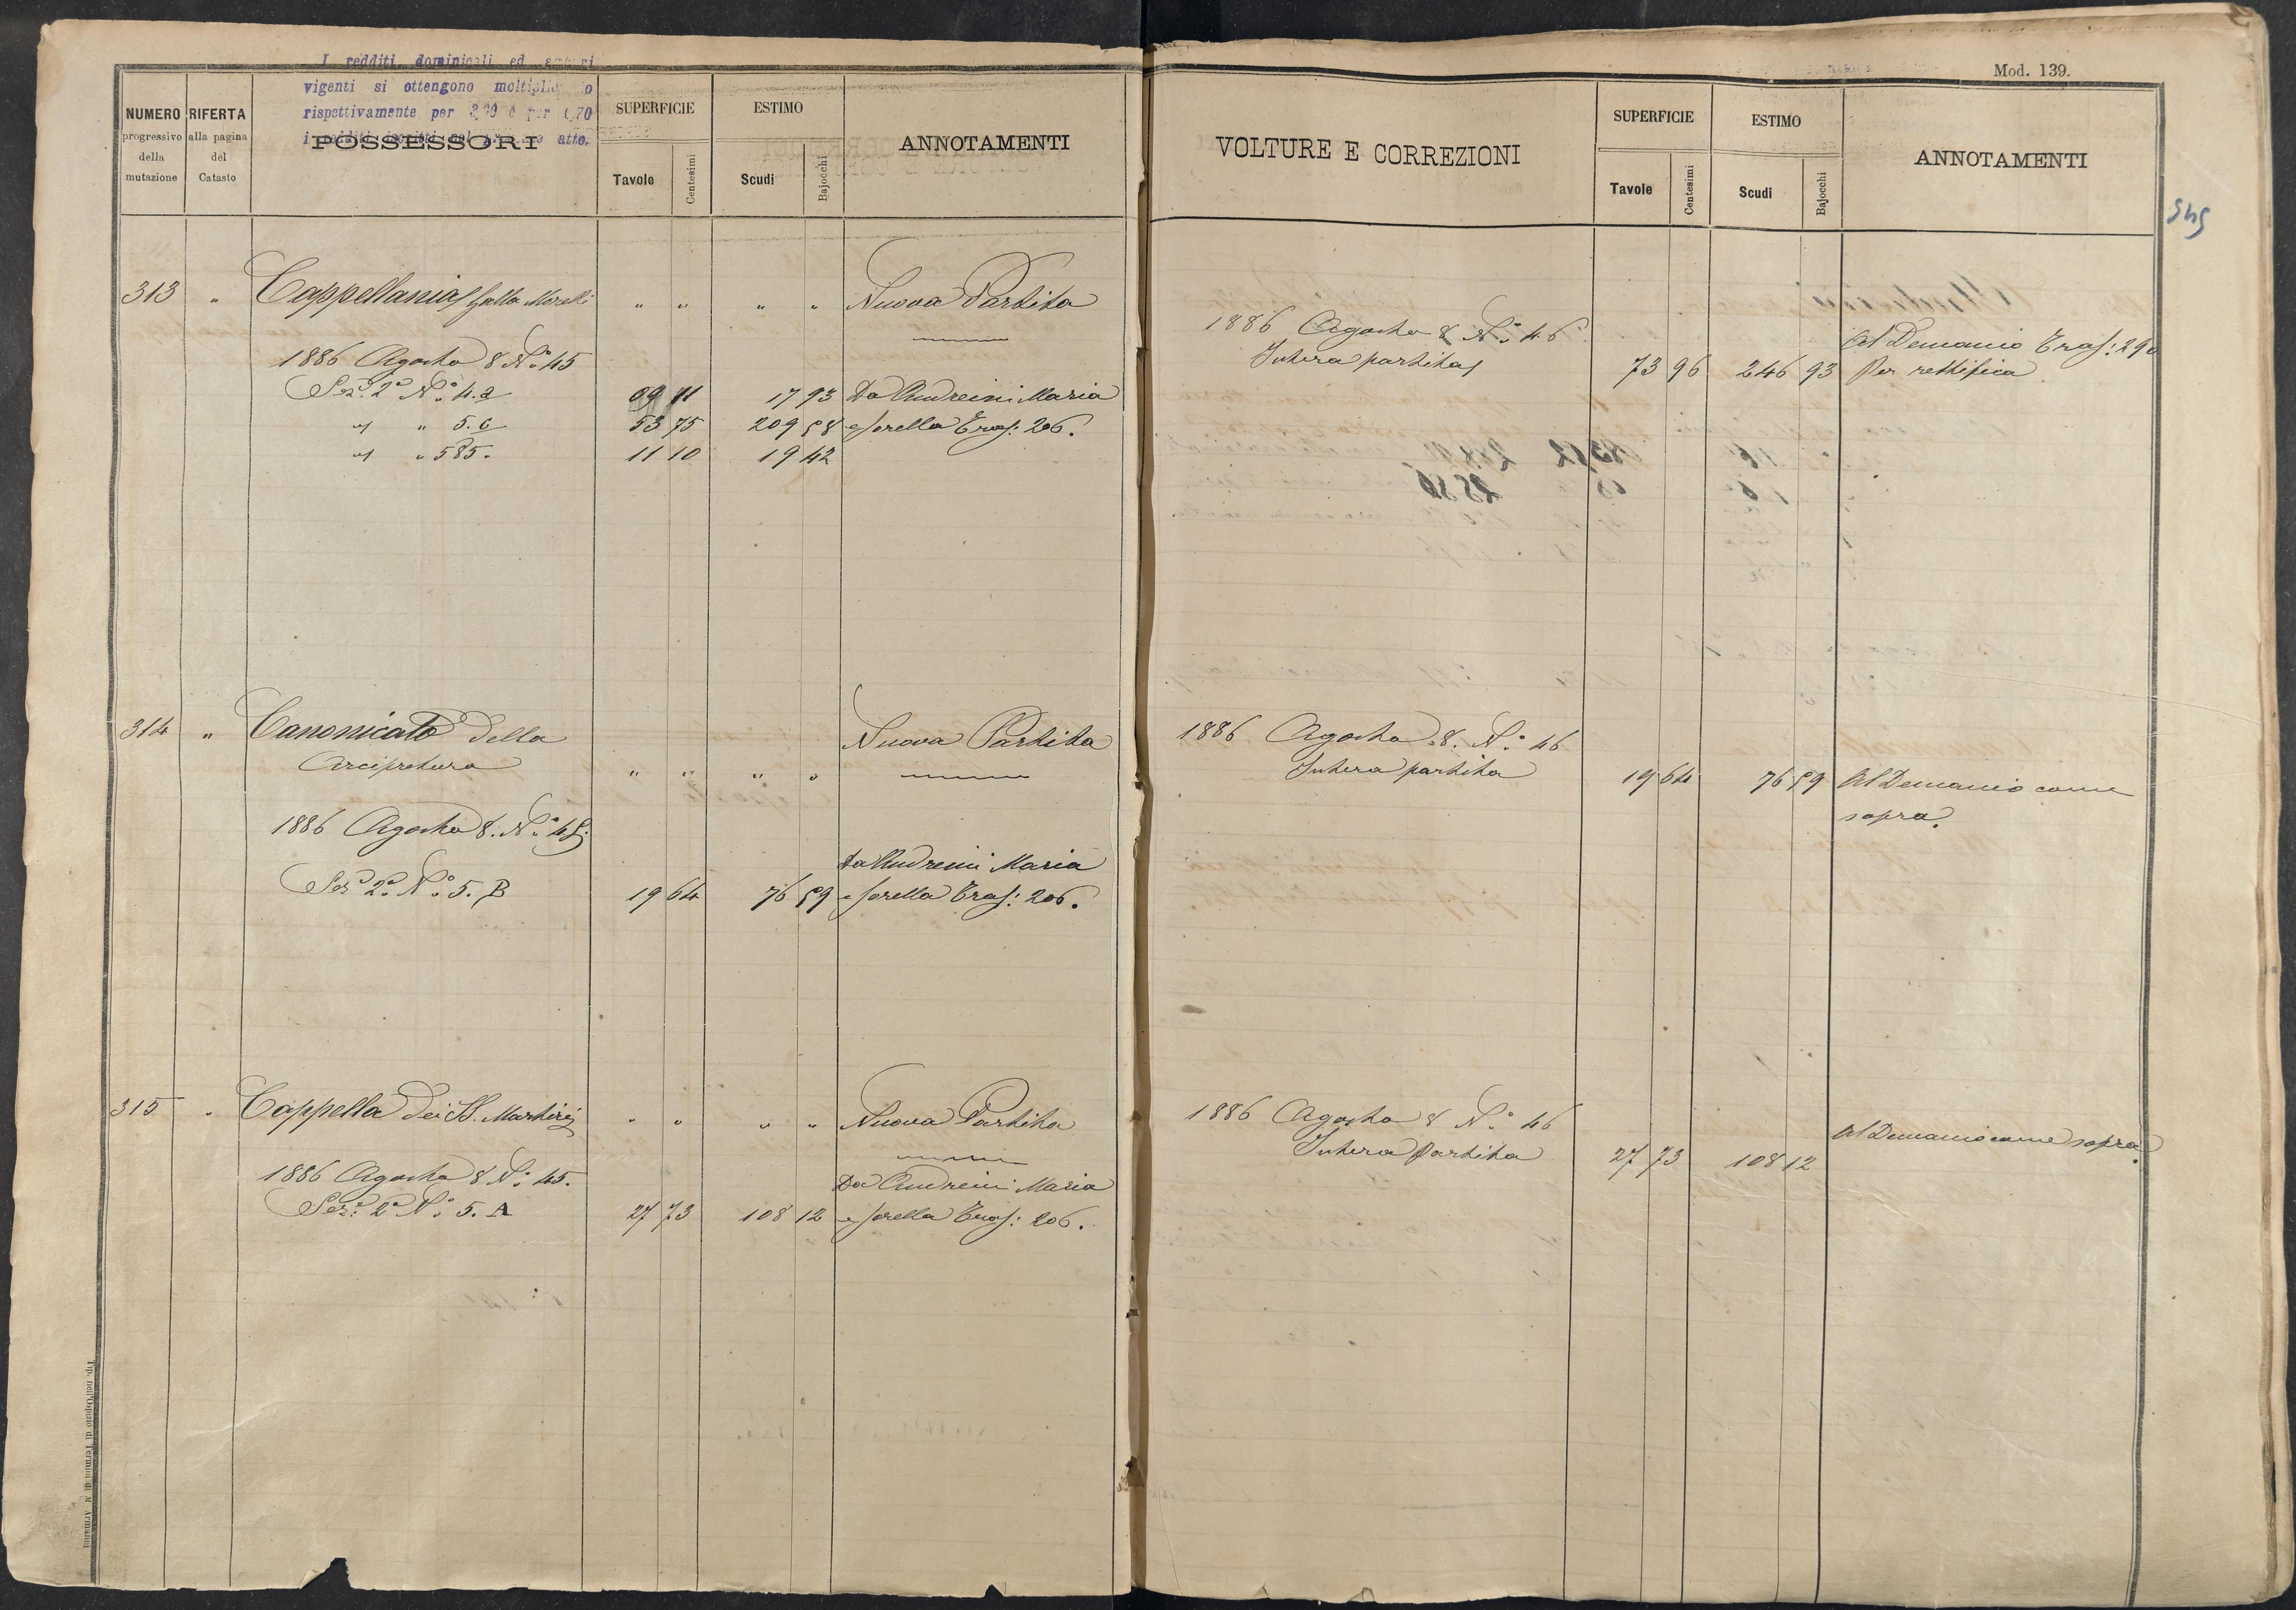 I redditi dominicali ed
vigenti si ottengono
rispettivamente per 3,20 e per 0,70
i redditi iscritti nel atto.
NUMERO progressivo della mutazione
RIFERTA alla pagina del Catasto
POSSESSORI
SUPERFICIE
Tavole Centesimi
ESTIMO
Scudi Bajocchi
ANNOTAMENTI
313 " Cappellania Galla Morelli " " " " Nuova Partita
1886 Agosto 8 N° 45
Sez.e 2a N° 4.a 09 11 17 93 Da Andreini Maria
" " 5.c 53 75 209 58 e sorella Trasf: 206.
" " 585. 11 10 19 42
314 " Canonicato della Nuova Partita
Arcipretura " " " "
1886 Agosto 8. N° 45
Da Andreini Maria
Sez.e 2a N° 5. B 19 64 76 59 e sorella Trasf: 206.
315 " Cappella dei SS. Martiri " " " " Nuova Partita
1886 Agosto 8 N° 45.
Da Andreini Maria
Sez.e 2a N° 5. A 27 73 108 12 e sorella Trasf: 206.
Tip. nell'Ospizio di Termini di M. Armanni
Mod. 139.
VOLTURE E CORREZIONI
SUPERFICIE
Tavole Centesimi
ESTIMO
Scudi Bajocchi
ANNOTAMENTI
1886 Agosto 8 N° 46 Al Demanio Trasf: 290
Intera partita 73 96 246 93 Per rettifica
1886 Agosto 8. N° 46
Intera partita 19 64 76 59 Al Demanio come
sopra.
1886 Agosto 8 N° 46
Intera partita 27 73 108 12 Al Demanio come sopra